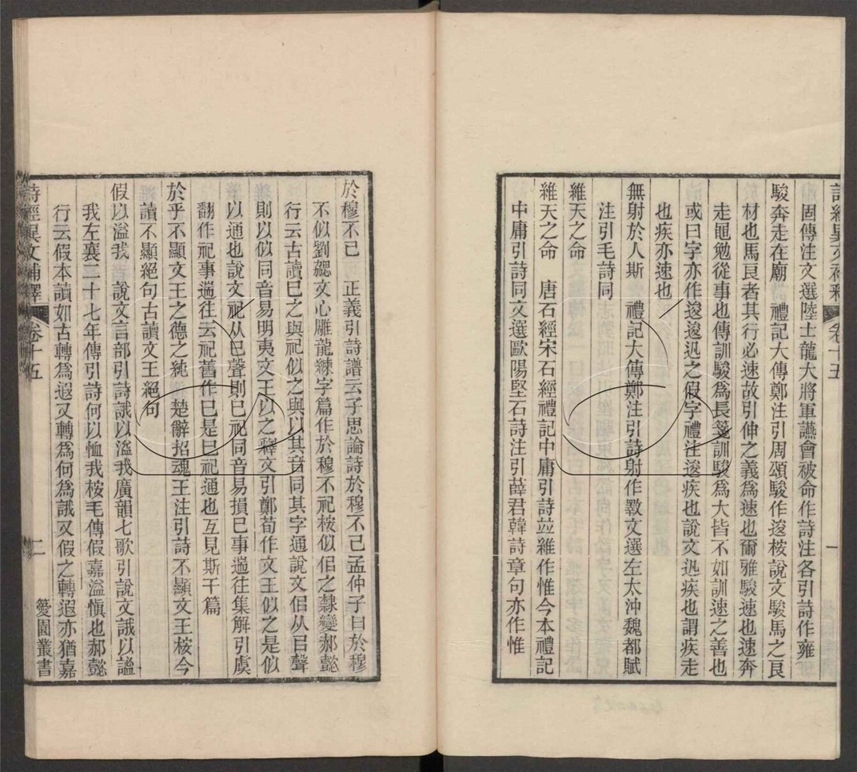 詩經異文補釋 卷十五 一
周傳注文選陸士龍大將軍讌會被命作詩注各引詩作雍
駿奔走在廟 禮記大傳鄭注引周頌駿作逡桉說文駿馬之良
材也馬良者其行必速故引伸之義爲速也爾雅駿速也速奔
走黽勉從事也傳訓駿爲長箋訓駿爲大皆不如訓速之善也
或曰字亦作逡逡迅之假字禮注逡疾也說文迅疾也謂疾走
也疾亦速也
無射於人斯 禮記大傳鄭注引詩射作斁文選左太沖魏都賦
注引毛詩同
維天之命
維天之命 唐石經宋石經禮記中庸引詩並維作惟今本禮記
中庸引詩同文選歐陽堅石詩注引薛君韓詩章句亦作惟
於穆不已 正義引詩譜云子思論詩於穆不已孟仲子曰於穆
不似劉勰文心雕龍練字篇作於穆不祀桉似佀之隸變郝懿
行云古讀巳之與祀似之與以其音同其字通說文佀从㠯聲
則以似同音易明夷文王以之釋文引鄭荀作文王似之是似
以通也說文祀从巳聲則巳祀同音易損巳事遄往集解引虞
翻作祀事遄往云祀舊作巳是巳祀通也互見斯干篇
於乎不顯文王之德之純 楚辭招魂王注引詩不顯文王桉今
讀不顯絕句古讀文王絕句
假以溢我 說文言部引詩誐以溢我廣韻七歌引說文誐以謐
我左襄二十七年傳引詩何以恤我桉毛傳假嘉溢愼也郝懿
行云假本讀如古轉爲遐又轉爲何爲誐又假之轉遐亦猶嘉
詩經異文補釋 卷十五 二 㜈園叢書